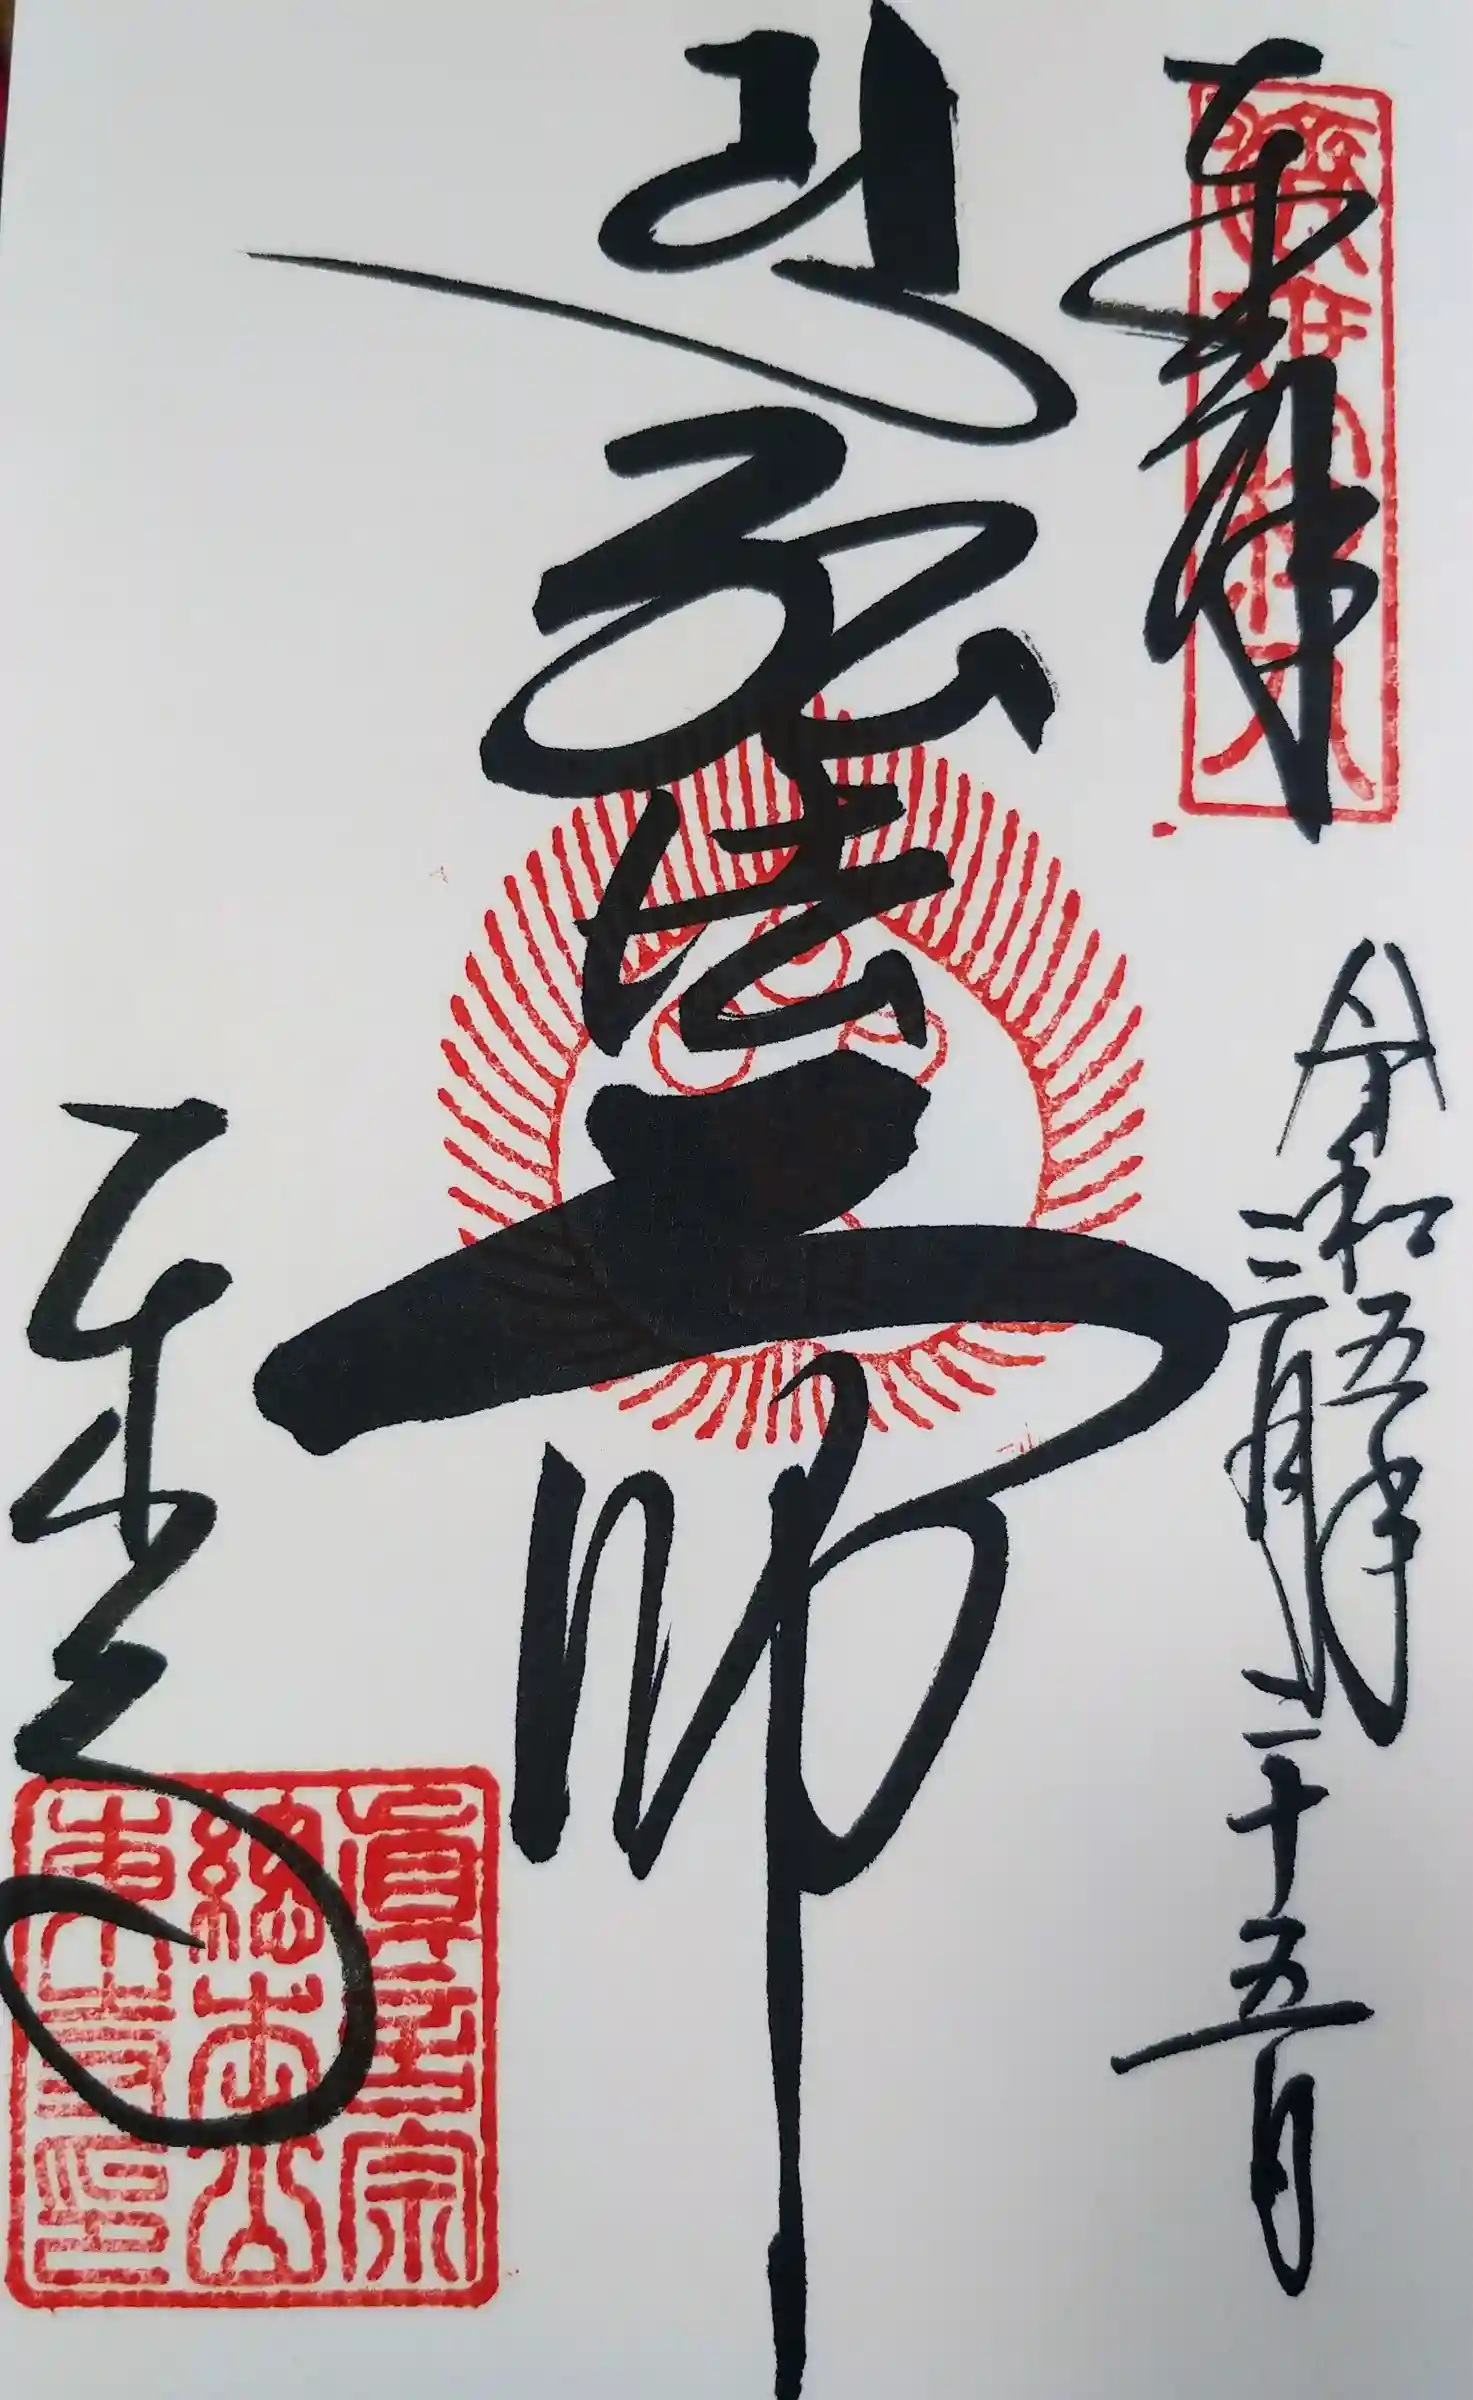 奉拝
令和五年
三月二十五日
弘法大師
東寺
眞言宗
總本山
東寺印